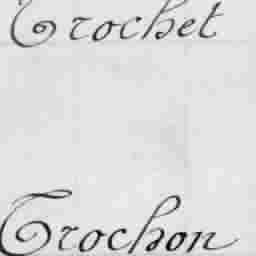 Crochet
Crochon